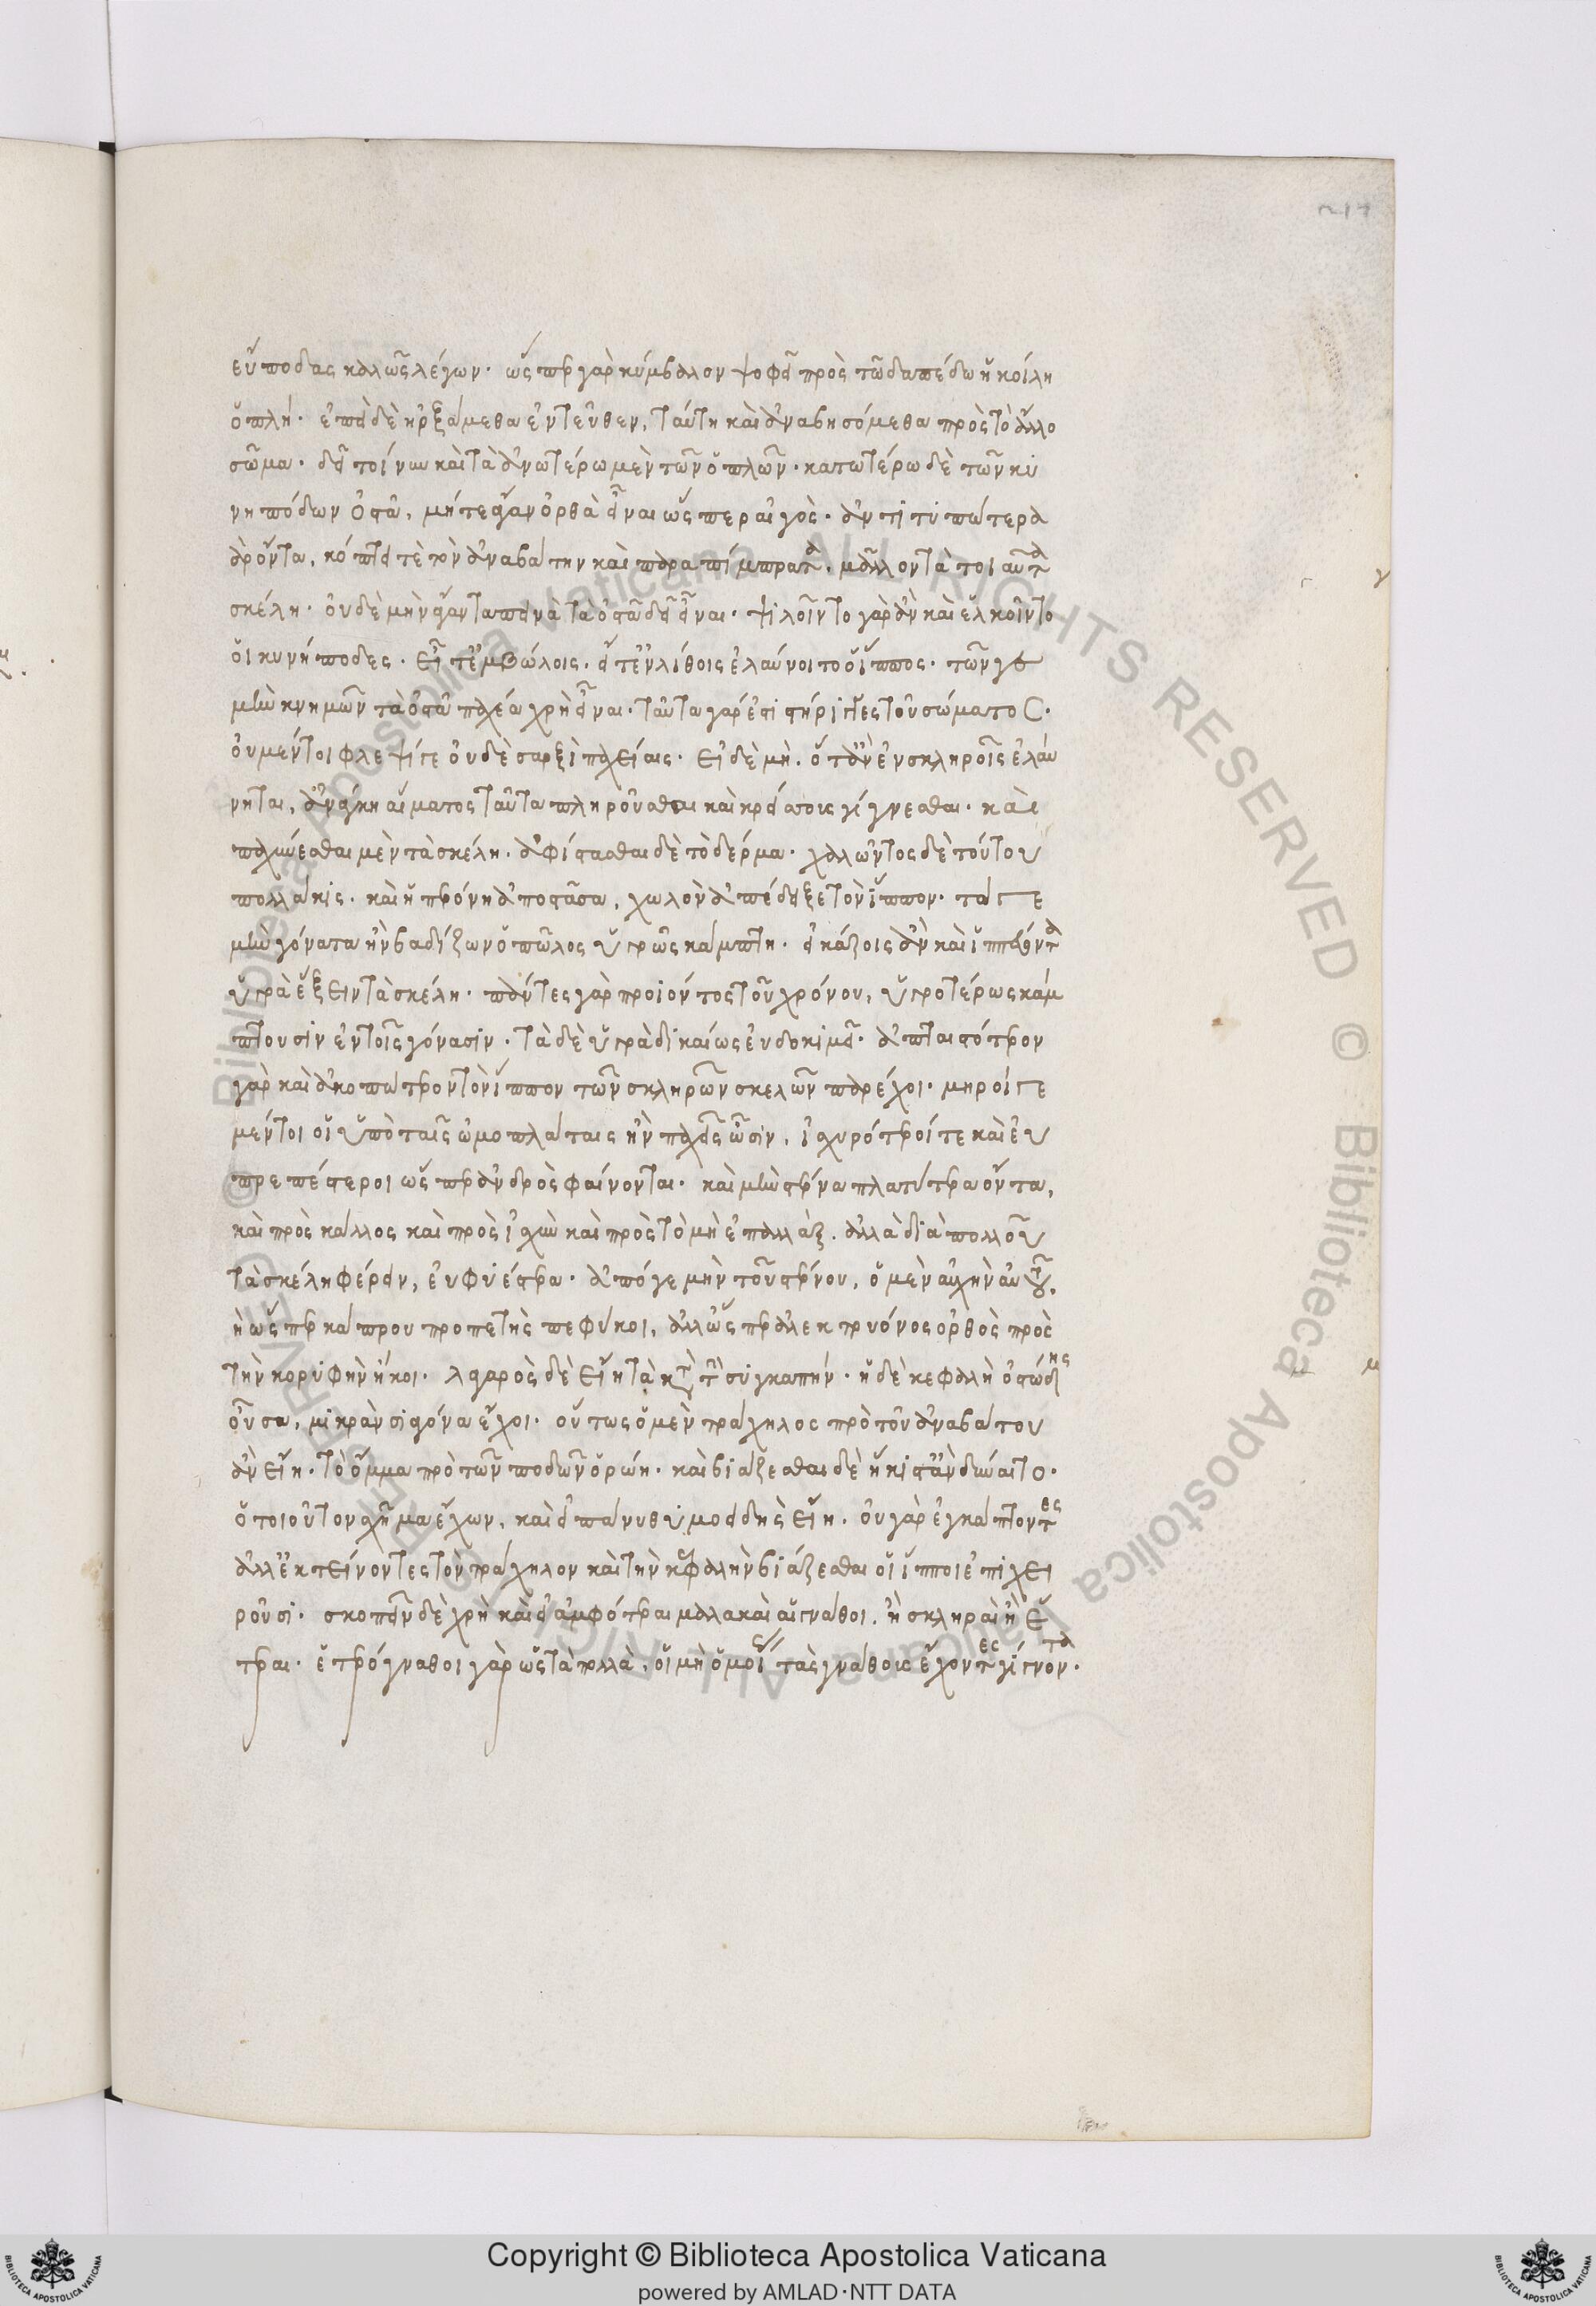 εὔποδας καλῶς λέγων· ὥσπερ γὰρ κύμβαλον ψοφεῖ πρὸς τῶ δαπέδω ἡ κοίλη
ὁπλή· ἐπεὶ δὲ ἠρξάμεθα ἐντεῦθεν, ταύτη καὶ ἀναβησόμεθα πρὸς τὸ ἄλλο
σῶμα· δεῖ τοίνυν καὶ τὰ ἀνωτέρω μὲν τῶν ὁπλῶν· κατωτέρω δὲ τῶν κυ
νηπόδων ὀστᾶ, μήτε ἄγαν ὀρθὰ εἶναι ὥσπερ αἰγὸς· ἀντιτυπώτερα
ὄντα, κόπτει τὲ τὸν ἀναβάτην καὶ παραπίμπραται, μᾶλλον τὰ τοιαῦτα
σκέλη· οὐδὲ μὴν ἄγαν ταπεινὰ τὰ ὀστᾶ δεῖ εἶναι· ψιλοῖντο γὰρ ἂν καὶ ἑλκοῖντο
οἱ κυνήποδες· εἴ τ' ἐμ βώλοις, εἴ τ' ἐν λίθοις ἐλαύνοιτο ὁ ἵππος· τῶν γε
μὴν κνημῶν τὰ ὀστᾶ παχέα χρὴ εἶναι· ταῦτα γάρ ἐστι στήριγγες τοῦ σώματος·
οὐ μέντοι φλεψί γε οὐδὲ σαρξὶ παχείαις· εἰ δὲ μὴ, ὅτ' ἂν ἐν σκληροῖς ἐλαύ
νηται, ἀνάγκη αἵματος ταῦτα πληροῦσθαι καὶ κρισσοὺς γίγνεσθαι· καὶ
παχύνεσθαι μὲν τὰ σκέλη, ἀφίστασθαι δὲ τὸ δέρμα· χαλῶντος δὲ τούτου
πολλάκις· καὶ ἡ περόνη ἀποστᾶσα, χωλὸν ἀπέδειξε τὸν ἵππον· τά γε
μὴν γόνατα ἢν βαδίζων ὁ πῶλος ὑγρῶς κάμπτη· εἰκάζοις ἂν καὶ ἱππεύοντα
ὑγρὰ ἕξειν τὰ σκέλη· πάντες γὰρ προϊόντος τοῦ χρόνου, ὑγροτέρως κάμ
πτουσιν ἐν τοῖς γόνασιν· τὰ δὲ ὑγρὰ δικαίως εὐδοκιμεῖ· ἀπταιστότερον
γὰρ καὶ ἀκοπώτερον τὸν ἵππον τῶν σκληρῶν σκελῶν παρέχοι· μηροί γε
μέντοι οἱ ὑπὸ ταῖς ὠμοπλάταις ἢν παχεῖς ὦσιν, ἰσχυρότεροί τε καὶ εὐ
πρεπέστεροι ὥσπερ ἀνδρὸς φαίνονται· καὶ μὴν στέρνα πλατύτερα ὄντα,
καὶ πρὸς κάλλος καὶ πρὸς ἰσχὺν καὶ πρὸς τὸ μὴ ἐπαλλὰξ, ἀλλὰ διὰ πολλοῦ
τὰ σκέλη φέρειν, εὐφυέστερα· ἀπό γε μὴν τοῦ στέρνου, ὁ μὲν αὐχὴν αὐτοῦ,
μὴ ὥσπερ κάπρου προπετὴς πεφύκοι, ἀλλ' ὥσπερ ἀλεκτρυόνος ὀρθὸς πρὸς
τὴν κορυφὴν ἥκοι· λαγαρὸς δὲ εἴη τὰ κατὰ τὴν συγκαμπήν· ἡ δὲ κεφαλὴ ὀστώδης
οὖσα, μικρὰν σιαγόνα ἔχοι· οὕτως ὁ μὲν τράχηλος πρὸ τοῦ ἀναβάτου
ἂν εἴη· τὸ ὄμμα πρὸ τῶν ποδῶν ὁρώη· καὶ βιάζεσθαι δὲ ἥκιστ' ἂν δύναιτο·
ὁ τοιοῦτον σχῆμα ἔχων, καὶ εἰ πάνυ θυμοειδὴς εἴη· οὐ γὰρ ἐγκάπτοντες
ἀλλ' ἐκτείνοντες τὸν τράχηλον καὶ τὴν κεφαλὴν βιάζεσθαι οἱ ἵπποι ἐπιχει
ροῦσι· σκοπεῖν δὲ χρὴ καὶ εἰ ἀμφότεραι μαλακαὶ αἱ γνάθοι, ἢ σκληραὶ ἢ ἑ
τέραι· ἑτερόγναθοι γὰρ ὡς τὰ πολλὰ, οἱ μὴ ὁμοίας τὰς γνάθους ἔχοντες γίγνονται·
Copyright © Biblioteca Apostolica Vaticana
powered by AMLAD·NTT DATA